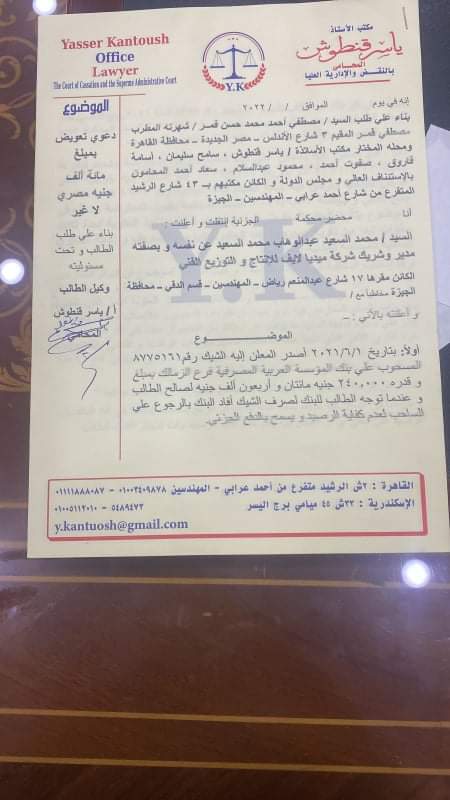 Yasser Kantoush
Office
Lawyer
The Court of Cassation and the Supreme Administrative Court
Y.K
مكتب الأستاذ
ياسر قنطوش
المحامى
بالنقض والإدارية العليا
الموضوع
دعوي تعويض
بمبلغ
مائة ألف
جنيه مصري
لا غير
بناء علي طلب
الطالب و تحت
مسئوليته
وكيل الطالب
أ / ياسر قنطوش
المحامي
إنه في يوم الموافق / / ٢٠٢٢
بناء علي طلب السيد / مصطفي أحمد محمد حسن قمر / شهرته المطرب
مصطفي قمر المقيم ٣ شارع الأندلس – مصر الجديدة – محافظة القاهرة
ومحله المختار مكتب الأساتذة / ياسر قنطوش ، سامح سليمان ، أسامة
فاروق ، صفوت أحمد ، محمود عبدالسلام ، سعاد أحمد المحامون
بالاستئناف العالي و مجلس الدولة و الكائن مكتبهم بـ ٤٣ شارع الرشيد
المتفرع من شارع أحمد عرابي – المهندسين – الجيزة
أنا محضر محكمة الجزئية انتقلت و أعلنت :
السيد / محمد السعيد عبدالوهاب محمد السعيد عن نفسه و بصفته
مدير وشريك شركة ميديا لايف للانتاج و التوزيع الفني
الكائن مقرها ١٧ شارع عبدالمنعم رياض – المهندسين – قسم الدقي – محافظة
الجيزة مخاطباً مع /
و أعلنته بالآتي : –
الموضـــــــــوع
أولاً: بتاريخ ٢٠٢١/٦/١ أصدر المعلن إليه الشيك رقم ٨٧٧٥١٦١
المسحوب علي بنك المؤسسة العربية المصرفية فرع الزمالك بمبلغ
و قدره ٢٤٠,٠٠٠ جنيه مائتان و أربعون ألف جنيه لصالح الطالب
و عندما توجه الطالب للبنك لصرف الشيك أفاد البنك بالرجوع علي
الساحب لعدم كفاية الرصيد و يسمح بالدفع الجزئي.
Y.K
القاهرة : ٢ش الرشيد متفرع من أحمد عرابي – المهندسين ٠١٠٠٣٤٠٩٨٧٨ – ٠١١١١٨٨٨٠٨٧
الإسكندرية : ٣٣ش ٤٥ ميامي برج اليسر ٥٤٨٩٤٧٣ – ٠١٠٠٥١١٢٠١٠
y.kantuosh@gmail.com